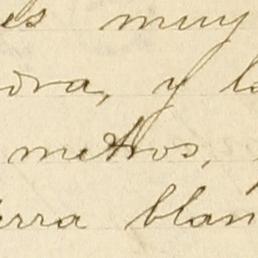 es muy
ora, y la
metros,
erra blan